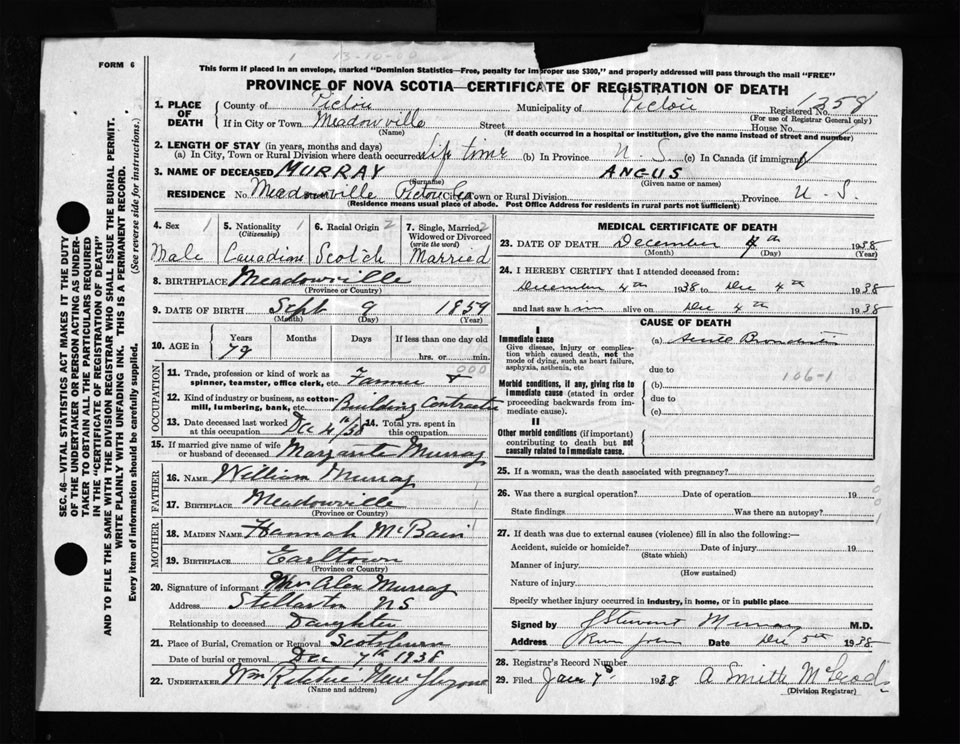 FORM 6
1 13-10-10
This form if placed in an envelope, marked "Dominion Statistics—Free, penalty for improper use $300," and properly addressed will pass through the mail "FREE"
PROVINCE OF NOVA SCOTIA—CERTIFICATE OF REGISTRATION OF DEATH
1. PLACE OF DEATH County of Pictou Municipality of Pictou Registered No. 1358
(For use of Registrar General only)
If in City or Town Meadowville Street House No.
(Name) (If death occurred in a hospital or institution, give the name instead of street and number)
2. LENGTH OF STAY (in years, months and days)
(a) In City, Town or Rural Division where death occurred Life time (b) In Province N. S. (c) In Canada (if immigrant)
3. NAME OF DECEASED MURRAY ANGUS
(Surname) (Given name or names)
RESIDENCE No. Meadowville Pictou Co City, Town or Rural Division Province N. S.
(Residence means usual place of abode. Post Office Address for residents in rural parts not sufficient)
4. Sex 1 5. Nationality 1 6. Racial Origin 2 7. Single, Married, 2
(Citizenship) Widowed or Divorced
(write the word)
Male Canadian Scotch Married
8. BIRTHPLACE Meadowville
(Province or Country)
9. DATE OF BIRTH Sept 9 1859
(Month) (Day) (Year)
10. AGE Years Months Days If less than one day old
79 hrs. or min.
OCCUPATION
11. Trade, profession or kind of work as
spinner, teamster, office clerk, etc. Farmer & 000
12. Kind of industry or business, as cotton-
mill, lumbering, bank, etc. Building Contractor
13. Date deceased last worked at this occupation Dec 4th/38 14. Total yrs. spent in this occupation
15. If married give name of wife
or husband of deceased Margarite Murray
FATHER
16. NAME William Murray
17. BIRTHPLACE Meadowville
(Province or Country)
MOTHER
18. MAIDEN NAME Hannah McBain
19. BIRTHPLACE Earltown
(Province or Country)
20. Signature of informant Mrs Alex Murray
Address Stellarton NS
Relationship to deceased Daughter
21. Place of Burial, Cremation or Removal Scotsburn
Date of burial or removal Dec 7th 1938
22. UNDERTAKER Wm Ritchie New
(Name and address)
MEDICAL CERTIFICATE OF DEATH
23. DATE OF DEATH December 4th 1938
(Month) (Day) (Year)
24. I HEREBY CERTIFY that I attended deceased from:
December 4th 1938 to Dec 4th 1938
and last saw him alive on Dec 4th 1938
CAUSE OF DEATH
I
Immediate cause
Give disease, injury or complication which caused death, not the mode of dying, such as heart failure, asphyxia, asthenia, etc
(a) Acute Bronchitis
due to
106-1
Morbid conditions, if any, giving rise to immediate cause (stated in order proceeding backwards from immediate cause).
(b)
due to
(c)
II
Other morbid conditions (if important) contributing to death but not causally related to immediate cause.
25. If a woman, was the death associated with pregnancy?
26. Was there a surgical operation? Date of operation 19
State findings Was there an autopsy?
0
0
1
27. If death was due to external causes (violence) fill in also the following:—
Accident, suicide or homicide? Date of injury 19
(State which)
Manner of injury
(How sustained)
Nature of injury
Specify whether injury occurred in industry, in home, or in public place
Signed by J Stewart Murray M.D.
Address River John Date Dec 5th 1938
28. Registrar's Record Number
29. Filed Jan 7 1938 A Smith McLeod
(Division Registrar)
SEC. 46—VITAL STATISTICS ACT MAKES IT THE DUTY
OF THE UNDERTAKER OR PERSON ACTING AS UNDER-
TAKER TO OBTAIN ALL THE PARTICULARS REQUIRED
IN THE "CERTIFICATE OF REGISTRATION OF DEATH"
AND TO FILE THE SAME WITH THE DIVISION REGISTRAR WHO SHALL ISSUE THE BURIAL PERMIT.
WRITE PLAINLY WITH UNFADING INK. THIS IS A PERMANENT RECORD.
Every item of information should be carefully supplied. (See reverse side for instructions.)